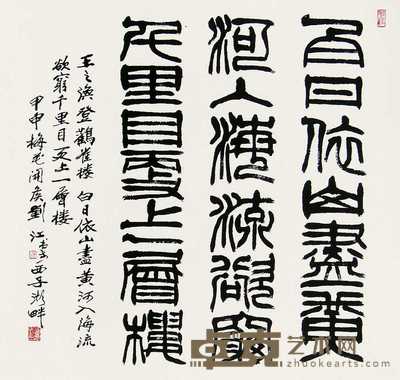 白日依山盡黃
河入海流欲窮
千里目更上一層樓
王之渙登鸛雀楼 白日依山盡黄河入海流
欲窮千里目更上一層楼
甲申梅花開候劉江書于西子湖畔
艺术网